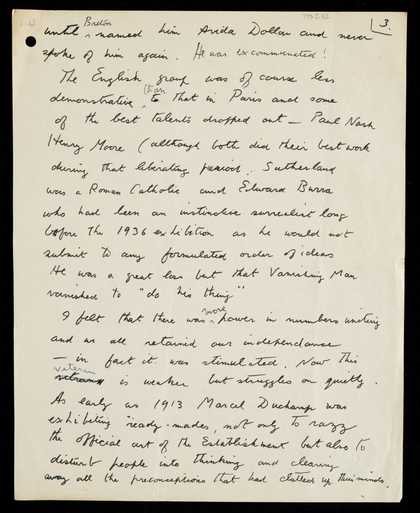 3.
until Breton named him Avida Dollars and never
spoke of him again. He was excommunicated!
The English group was of course less
demonstrative, than to that in Paris and some
of the best talents dropped out — Paul Nash
Henry Moore (although both did their best work
during that liberating period. Sutherland
was a Roman Catholic and Edward Burra
who had been an instinctive surrealist long
before the 1936 exhibition as he would not
submit to any formulated order of ideas
He was a great loss but that Vanishing Man
vanished to "do his thing"
I felt that there was more power in numbers uniting
and we all retained our independance
— in fact it was stimulated. Now this
veteran is weaker but struggles on quietly.
As early as 1913 Marcel Duchamp was
exhibiting ready-mades, not only to razz
the official art of the Establishment but also to
disturb people into thinking and clearing
away all the preconceptions that had clotted up their minds.